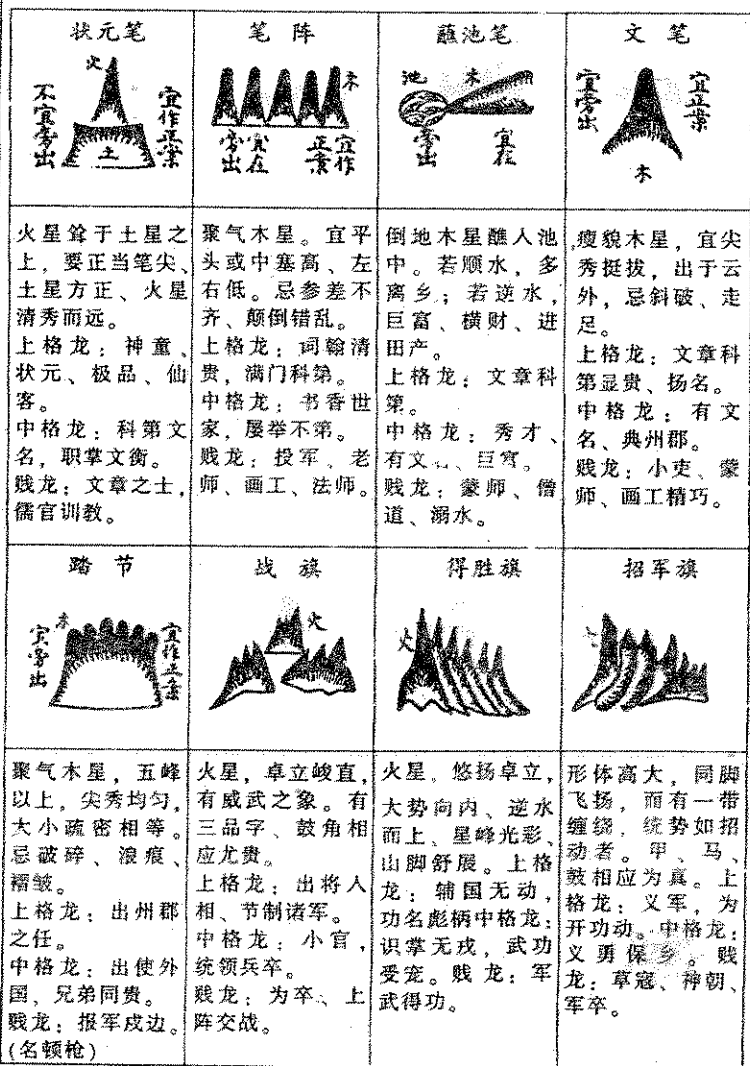 状元笔
火
不宜旁出
宜作正案
土
火星耸于土星之
上，要正当笔尖、
土星方正、火星
清秀而远。
上格龙：神童、
状元、极品、仙
客。
中格龙：科第文
名，职掌文衡。
贱龙：文章之士，
儒官训教。
笔阵
木
旁出
宜在
正案
宜作
聚气木星。宜平
头或中塞高、左
右低。忌参差不
齐、颠倒错乱。
上格龙：词翰清
贵，满门科第。
中格龙：书香世
家，屡举不第。
贱龙：投军、老
师、画工、法师。
蘸池笔
池
木
旁出
宜在
倒地木星醮人池
中。若顺水，多
离乡；若逆水，
巨富、横财、进
田产。
上格龙：文章科
第。
中格龙：秀才、
有文、巨富。
贱龙：蒙师、僧
道、溺水。
文笔
宜旁出
宜正案
木
瘦貌木星，宜尖
秀挺拔，出于云
外，忌斜破、走
足。
上格龙：文章科
第显贵、扬名。
中格龙：有文
名、典州郡。
贱龙：小吏、蒙
师、画工精巧。
踏节
木
宜旁出
宜作正案
聚气木星，五峰
以上，尖秀均匀，
大小疏密相等。
忌破碎、浪痕、
褶皱。
上格龙：出州郡
之任。
中格龙：出使外
国、兄弟同贵。
贱龙：报军戍边。
(名顿枪)
战旗
火
火星，卓立峻直，
有威武之象。有
三品字、鼓角相
应尤贵。
上格龙：出将人
相、节制诸军。
中格龙：小官，
统领兵卒。
贱龙：为卒、上
阵交战。
得胜旗
火
火星。悠扬卓立，
大势向内、逆水
而上、星峰光彩、
山脚舒展。上格
龙：辅国无动，
功名彪柄中格龙：
识掌无戎，武功
受宠。贱龙：军
武得功。
招军旗
形体高大，同脚
飞扬，而有一带
缠绕，统势如招
动者。甲、马、
鼓相应为真。上
格龙：义军，为
开功动。中格龙：
义勇保乡。贱
龙：草寇、神朝、
军卒。